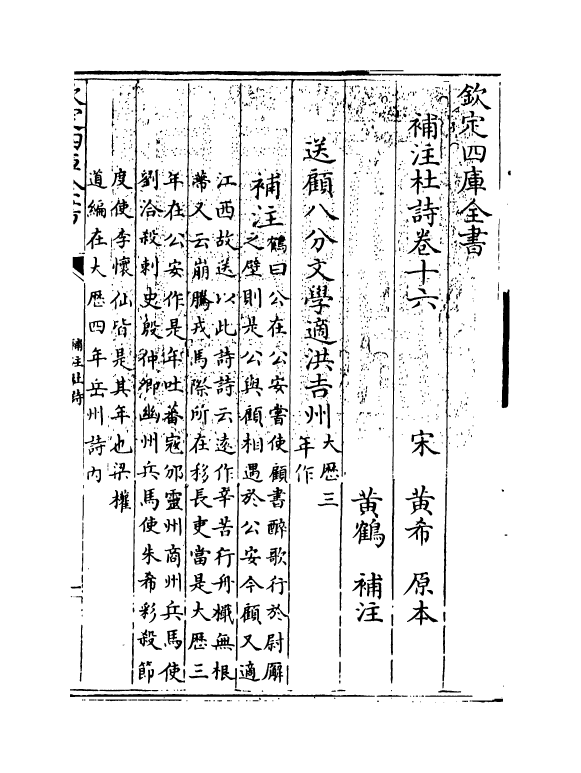 欽定四庫全書
補注杜詩卷十六
宋　黃希　原本
黃鶴　補注
送顧八分文學適洪吉州大歷三年作
補注鶴曰公在公安嘗使顧書醉歌行於尉廨
之壁則是公與顧相遇於公安今顧又適
江西故送以此詩詩云遠作辛苦行舟檝無根
蔕又云崩騰戎馬際所在移長吏當是大歷三
年在公安作是年吐蕃寇邠靈州商州兵馬使
劉洽殺刺史殷仲卿幽州兵馬使朱希彩殺節
度使李懷仙皆是其年也梁權
道編在大歷四年岳州詩內
補注杜詩
一